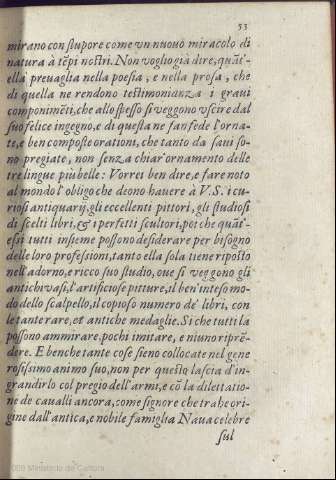 53
mirano con stupore come vn nuouo miracolo di
natura à tẽpi nostri. Non voglio già dire, quãt'-
ella preuaglia nella poesia, e nella prosa, che
di quella ne rendono testimonianza i graui
componimẽti, che allo spesso si veggono vscire dal
suo felice ingegno, e di questa ne fan fede l'orna-
te, e ben composte orationi, che tanto da saui so-
no pregiate, non senza chiar'ornamento delle
tre lingue più belle: Vorrei ben dire, e fare noto
al mondo l'obligo che deono hauere à V.S. i cu-
riosi antiquarij, gli eccellenti pittori, gli studiosi
di scelti libri, & i perfetti scultori, poi che quãt'-
essi tutti insieme possono desiderare per bisogno
delle loro professioni, tanto ella sola tiene riposto
nell'adorno, e ricco suo studio, oue si veggono gli
antichi vasi, l'artificiose pitture, il ben'inteso mo-
do dello scalpello, il copioso numero de' libri, con
le tante rare, et antiche medaglie. Si che tutti la
possono ammirare, pochi imitare, e niuno riprẽ-
dere. E benche tante cose sieno collocate nel gene
rosissimo animo suo, non per questo lascia d'in-
grandirlo col pregio dell'armi, e cõ la dilettatio-
ne de caualli ancora, come signore che trahe ori-
gine dall'antica, e nobile famiglia Naua celebre
sul
009 Ministerio de Cultura